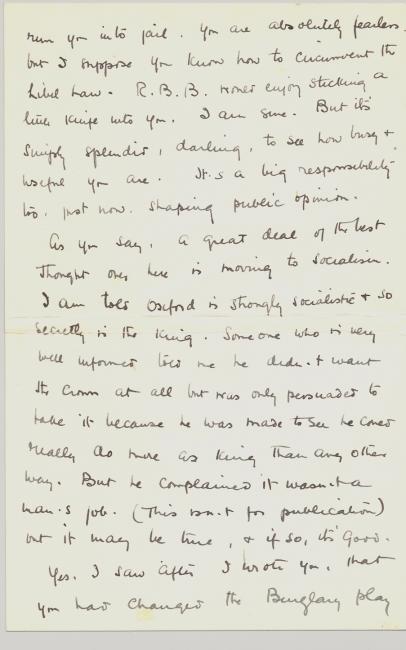 run you into jail. You are absolutely fearless.
but I suppose you know how to circumvent the
Libel Law. R.B.B. would enjoy sticking a
little knife into you. I am sure. But it's
simply splendid, darling, to see how busy &
useful you are. It's a big responsibility
too, just now. Shaping public opinion.
As you say, a great deal of the best
thought over here is moving to socialism.
I am told Oxford is strongly socialistic & so
secretly is the King. Someone who is very
well informed told me he didn't want
the Crown at all but was only persuaded to
take it because he was made to see he could
really do more as King than any other
way. But he complained it wasn't a
man's job. (This isn't for publication)
but it may be true, & if so, it's good.
Yes. I saw after I wrote you, that
you had changed the Burglary play